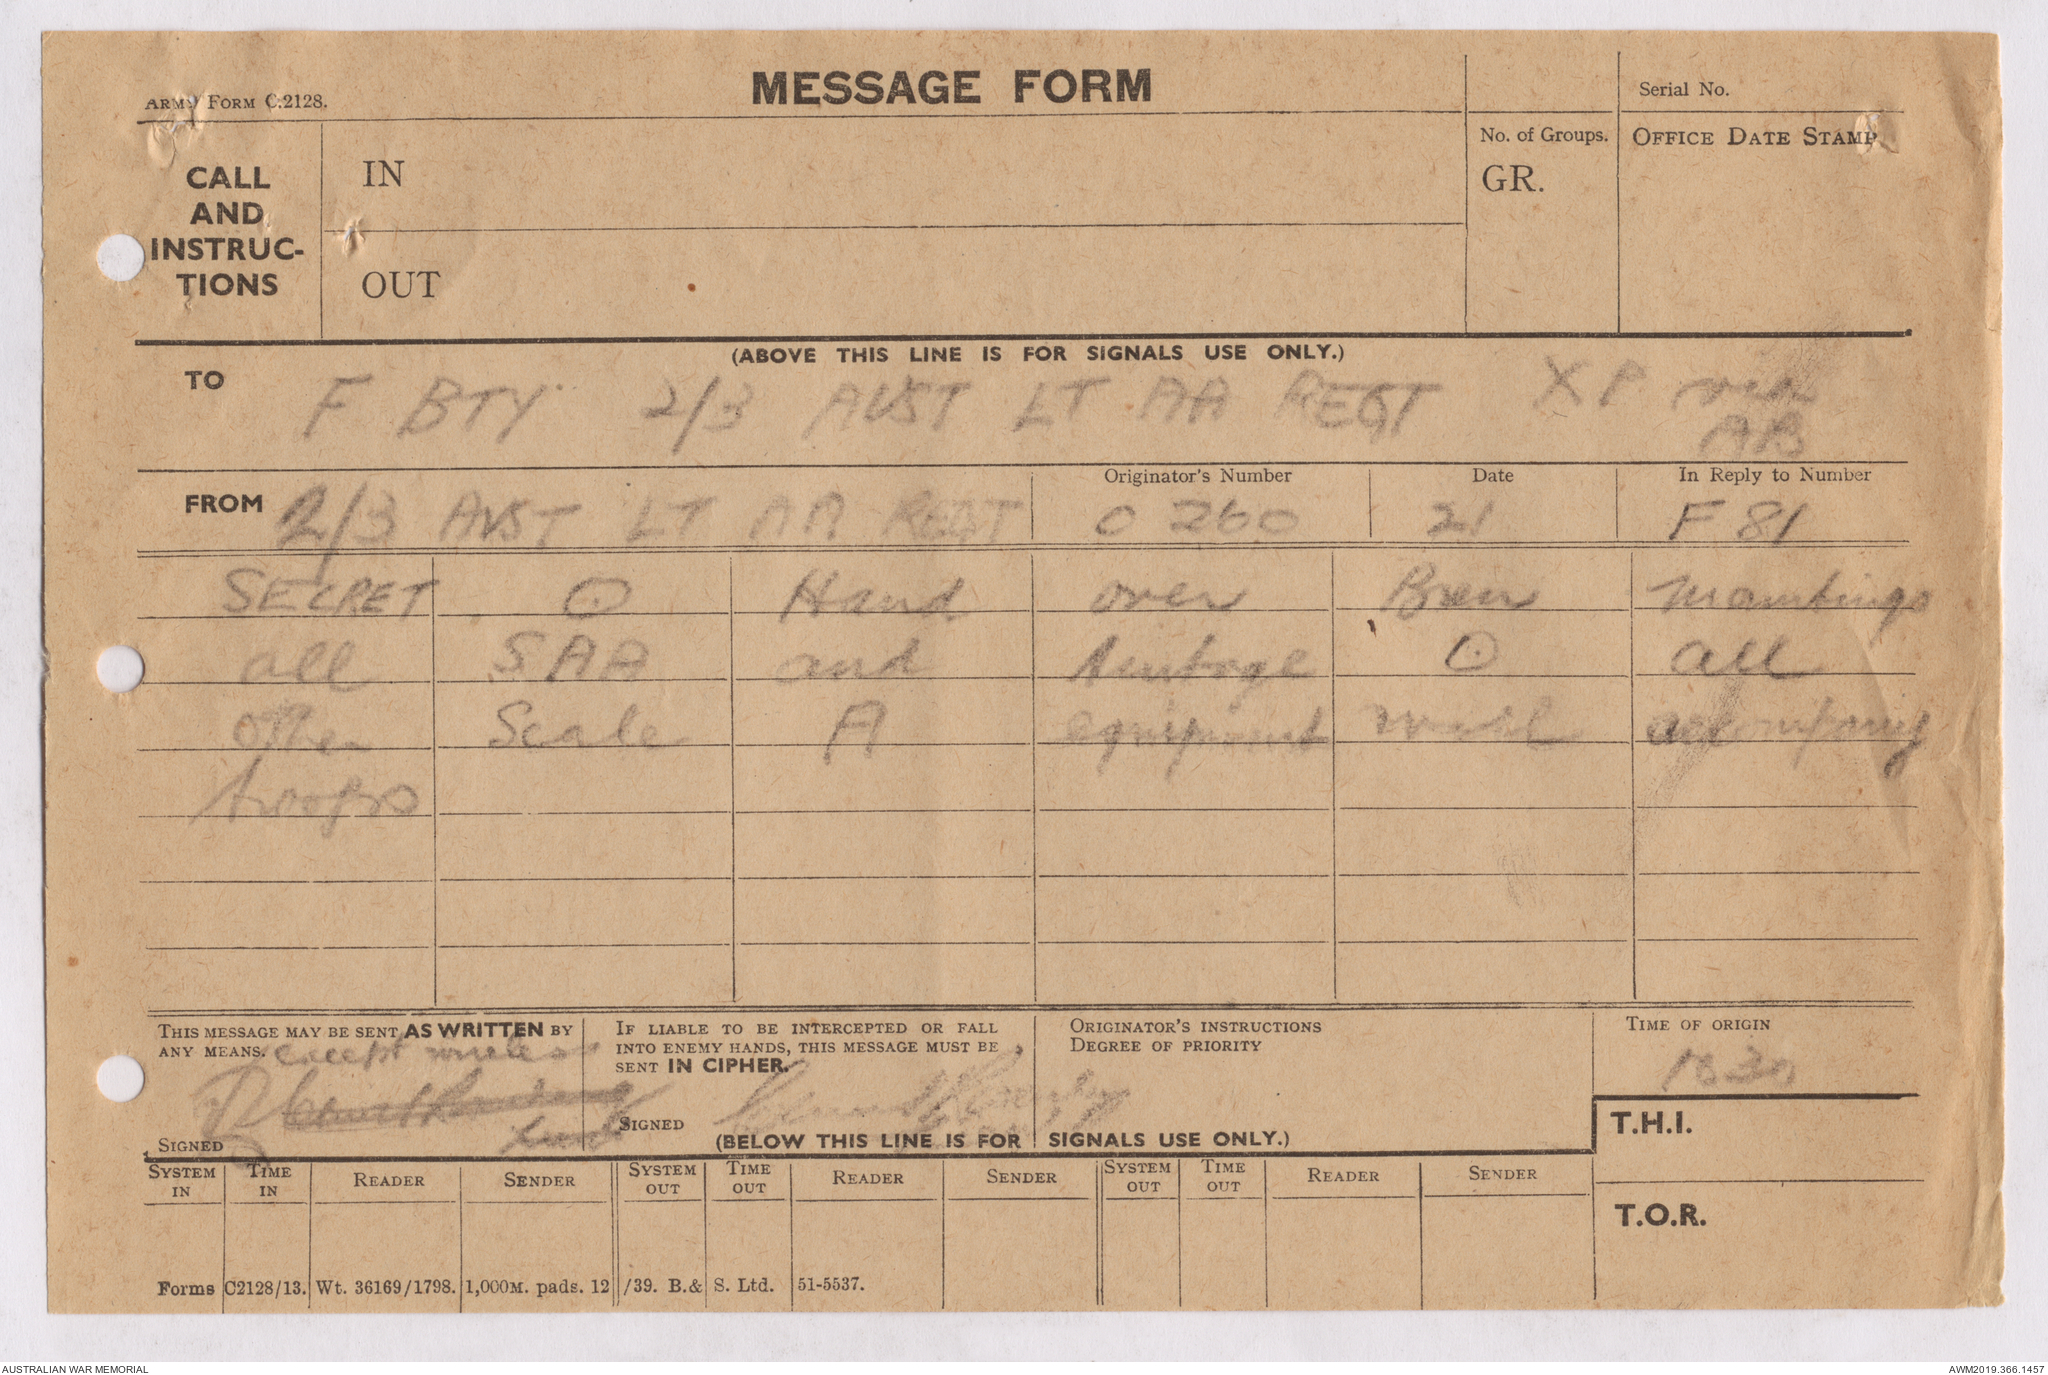 ARMY FORM C.2128.
MESSAGE FORM
Serial No.
CALL AND INSTRUC-TIONS
IN
OUT
No. of Groups.
GR.
OFFICE DATE STAMP
(ABOVE THIS LINE IS FOR SIGNALS USE ONLY.)
TO F BTY 2/3 AUST LT AA REGT X P
AB
FROM 2/3 AUST LT AA REGT
Originator's Number O 260
Date 21
In Reply to Number F 81
SECRET ⊙ Hand over Bren mountings
all SAA and ⊙ all
other Scale A equipment will accompany
troops
THIS MESSAGE MAY BE SENT AS WRITTEN BY
ANY MEANS. except wireless
SIGNED
IF LIABLE TO BE INTERCEPTED OR FALL
INTO ENEMY HANDS, THIS MESSAGE MUST BE
SENT IN CIPHER.
SIGNED
ORIGINATOR'S INSTRUCTIONS
DEGREE OF PRIORITY
TIME OF ORIGIN
1630
(BELOW THIS LINE IS FOR SIGNALS USE ONLY.)
T.H.I.
T.O.R.
SYSTEM IN TIME IN READER SENDER SYSTEM OUT TIME OUT READER SENDER SYSTEM OUT TIME OUT READER SENDER
Forms C2128/13. Wt. 36169/1798. 1,000M. pads. 12/39. B.& S. Ltd. 51-5537.
AUSTRALIAN WAR MEMORIAL
AWM2019.366.1457